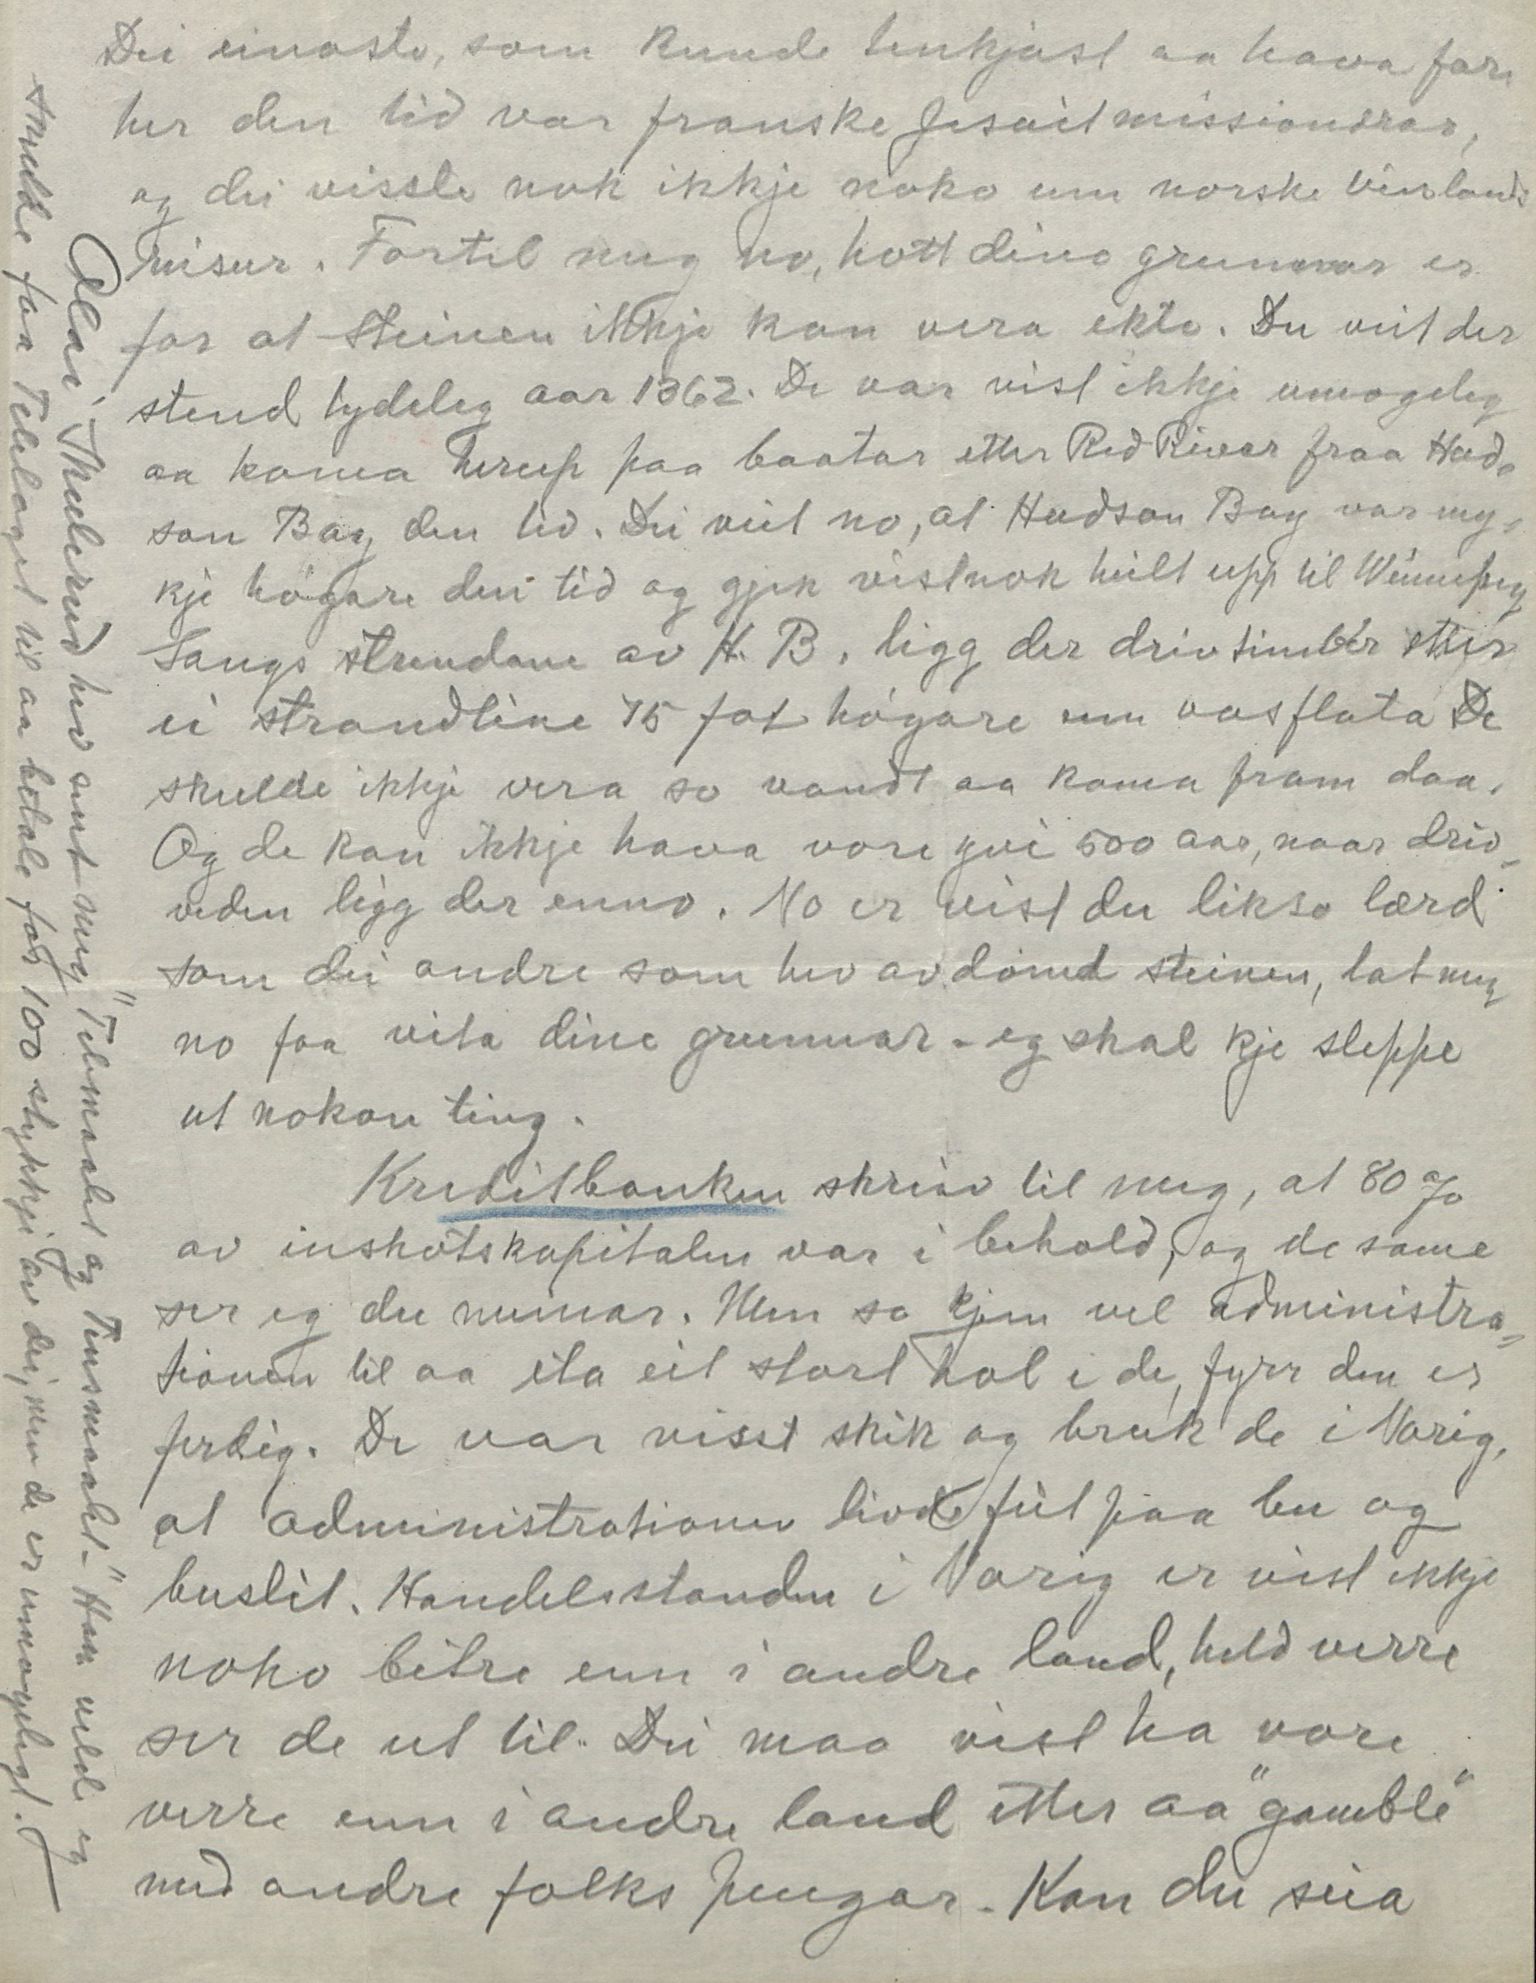 Dei einaste, som kunde tenkjast aa hava fare
her den tid var franske Jesuitmissionærar,
og dei visste nok ikkje noko um norske Vinlands
reisur. Fortel meg no, kott dine grunnar er
for at steinen ikkje kan vera ekte. Du veit der
stend tydeleg aar 1362. De var vist ikkje umogeleg
aa koma herup paa baatar etter Red River fraa Hud-
son Bay den tid. Dei veit no, at Hudson Bay var my-
kje högare den tid og gjek vistnok heilt upp til Winnipeg
Langs strendane av H. B. ligg der drivtimber etter
ei strandline 75 fot högare enn vasflata De
skulde ikkje vera so vandt aa koma fram daa.
Og de kan ikkje hava vore yvi 500 aar, naar driv-
veden ligg der enno. No er vist du likso lærd
som dei andre som hev avdömd steinen, lat meg
no faa vita dine grunnar - eg skal kje sleppe
ut nokon ting.
Kreditbanken skriv til meg, at 80 %
av inskotskapitalen var i behold, og de same
ser eg du meinar. Men so kjem vel administra-
tionen til aa eta eit stort hol i de, fyrr den er
ferdig. De var visst skik og bruk de i Norig,
at administrationen livde feit paa bu og
buslit. Handelsstanden i Norig er vist ikkje
noko betre enn i andre land, held verre
ser de ut til. Dei maa vist ha vore
verre enn i andre land etter aa "gamble"
med andre folks pengar. Kan du seia
Olai Thulerud hev sent meg "Telemaalet og Tinsmaalet-" Han vilde eg
skulde faa Telelaget til aa betale for 100 stykkje av dei, men de er umogelegt.